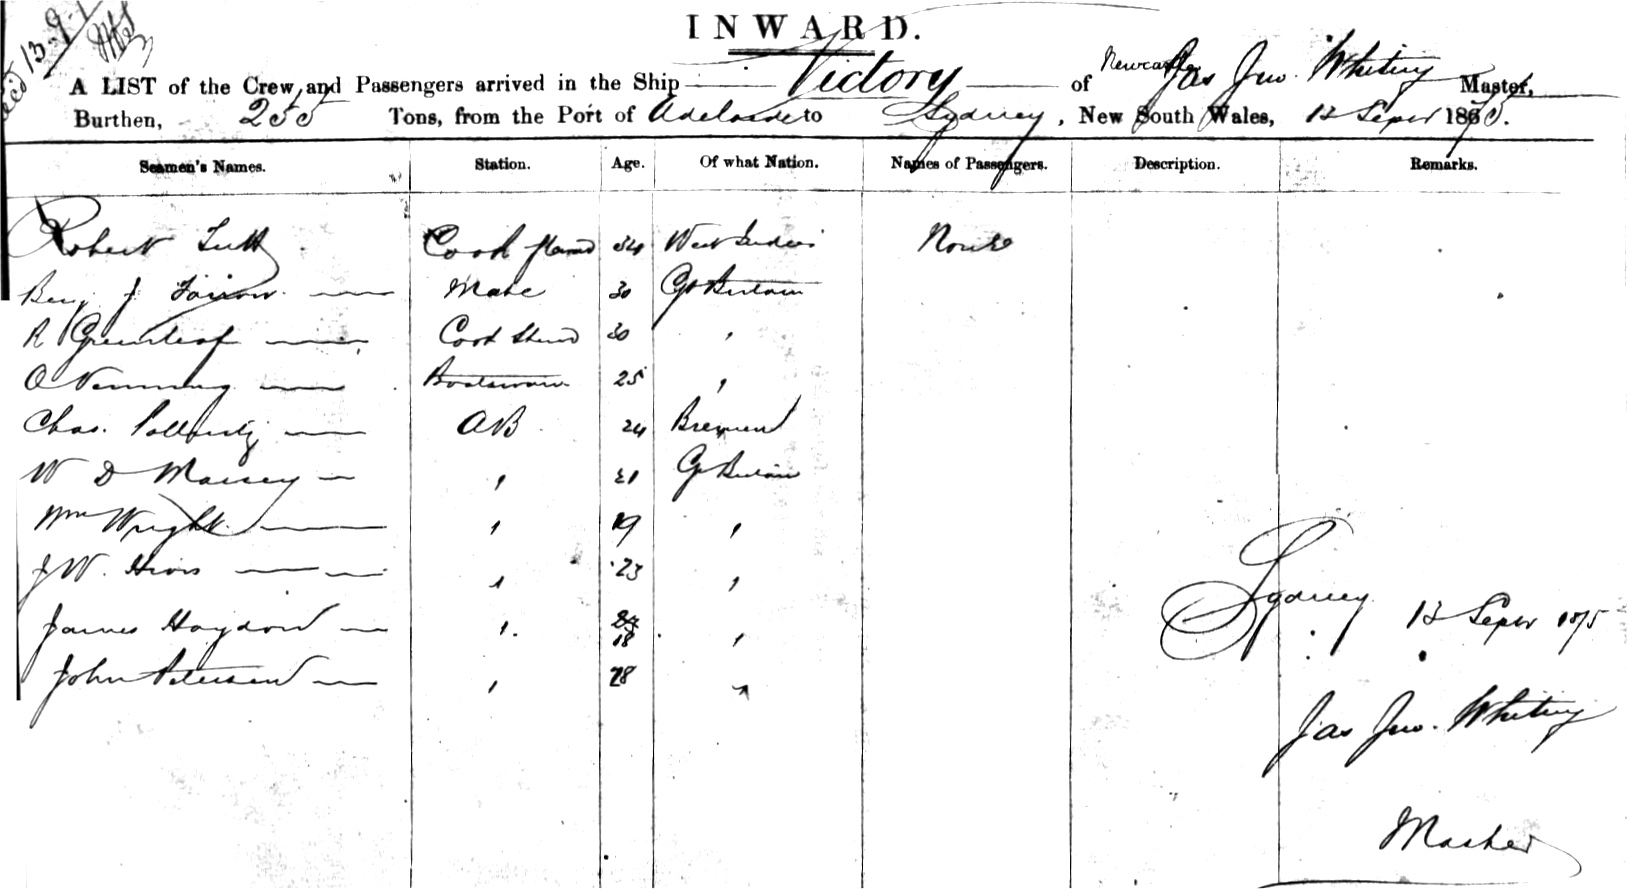 Recd 13.9.
INWARD.
A LIST of the Crew and Passengers arrived in the Ship Victory of Newcastle Jas Jno. Whiting Master,
Burthen, 255 Tons, from the Port of Adelaide to Sydney, New South Wales, 12 Sepr 1875.
Seamen's Names. Station. Age. Of what Nation. Names of Passengers. Description. Remarks.
Robert Cook 34 West Indies None
Benj J Mate 30 Gt Britain
R Greenleaf Cook Stewd 30 "
O Boatswain 25 "
Chas. AB 24 Bremen
W D Massey " 21 Gt Britain
Wm Wright " 19 "
J W. " 23 "
James Haydon " 18 "
John Petersen " 28 "
Sydney 12 Sepr 1875
Jas Jno. Whiting
Master